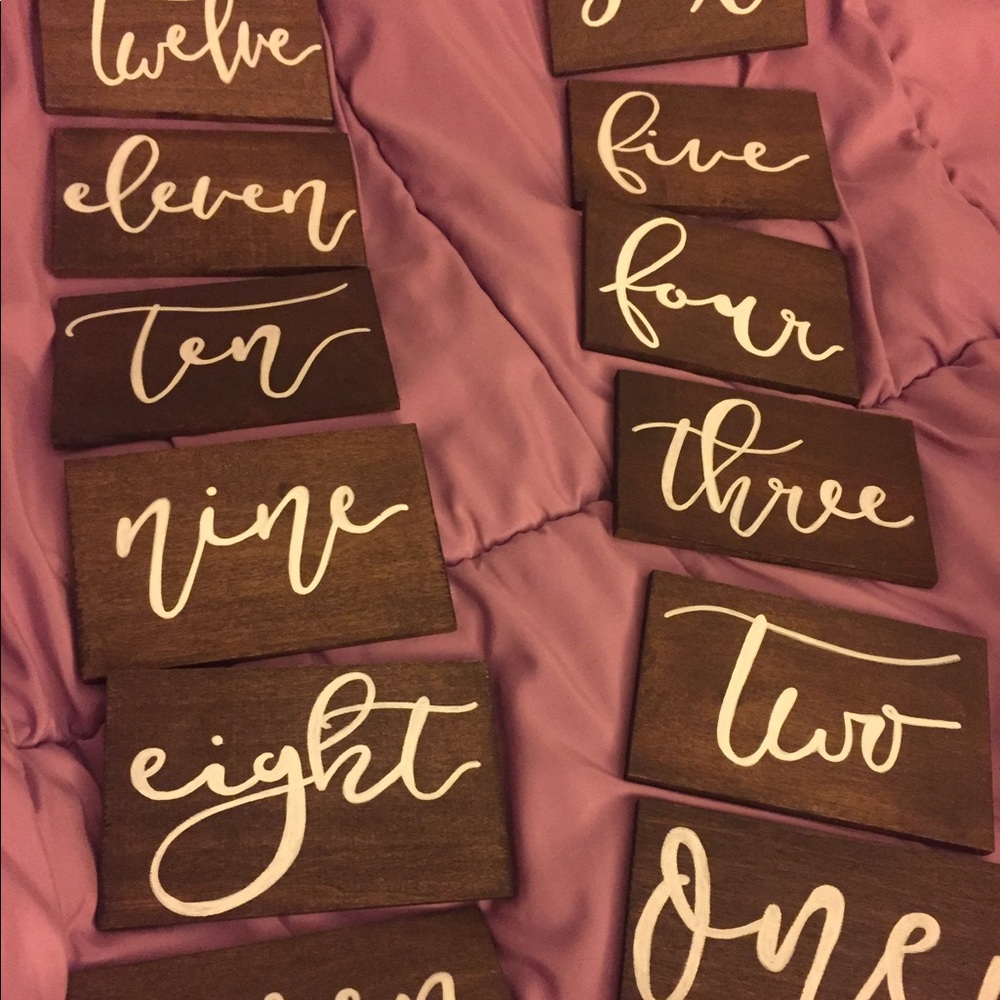 twelve
eleven
ten
nine
eight
five
four
three
two
one